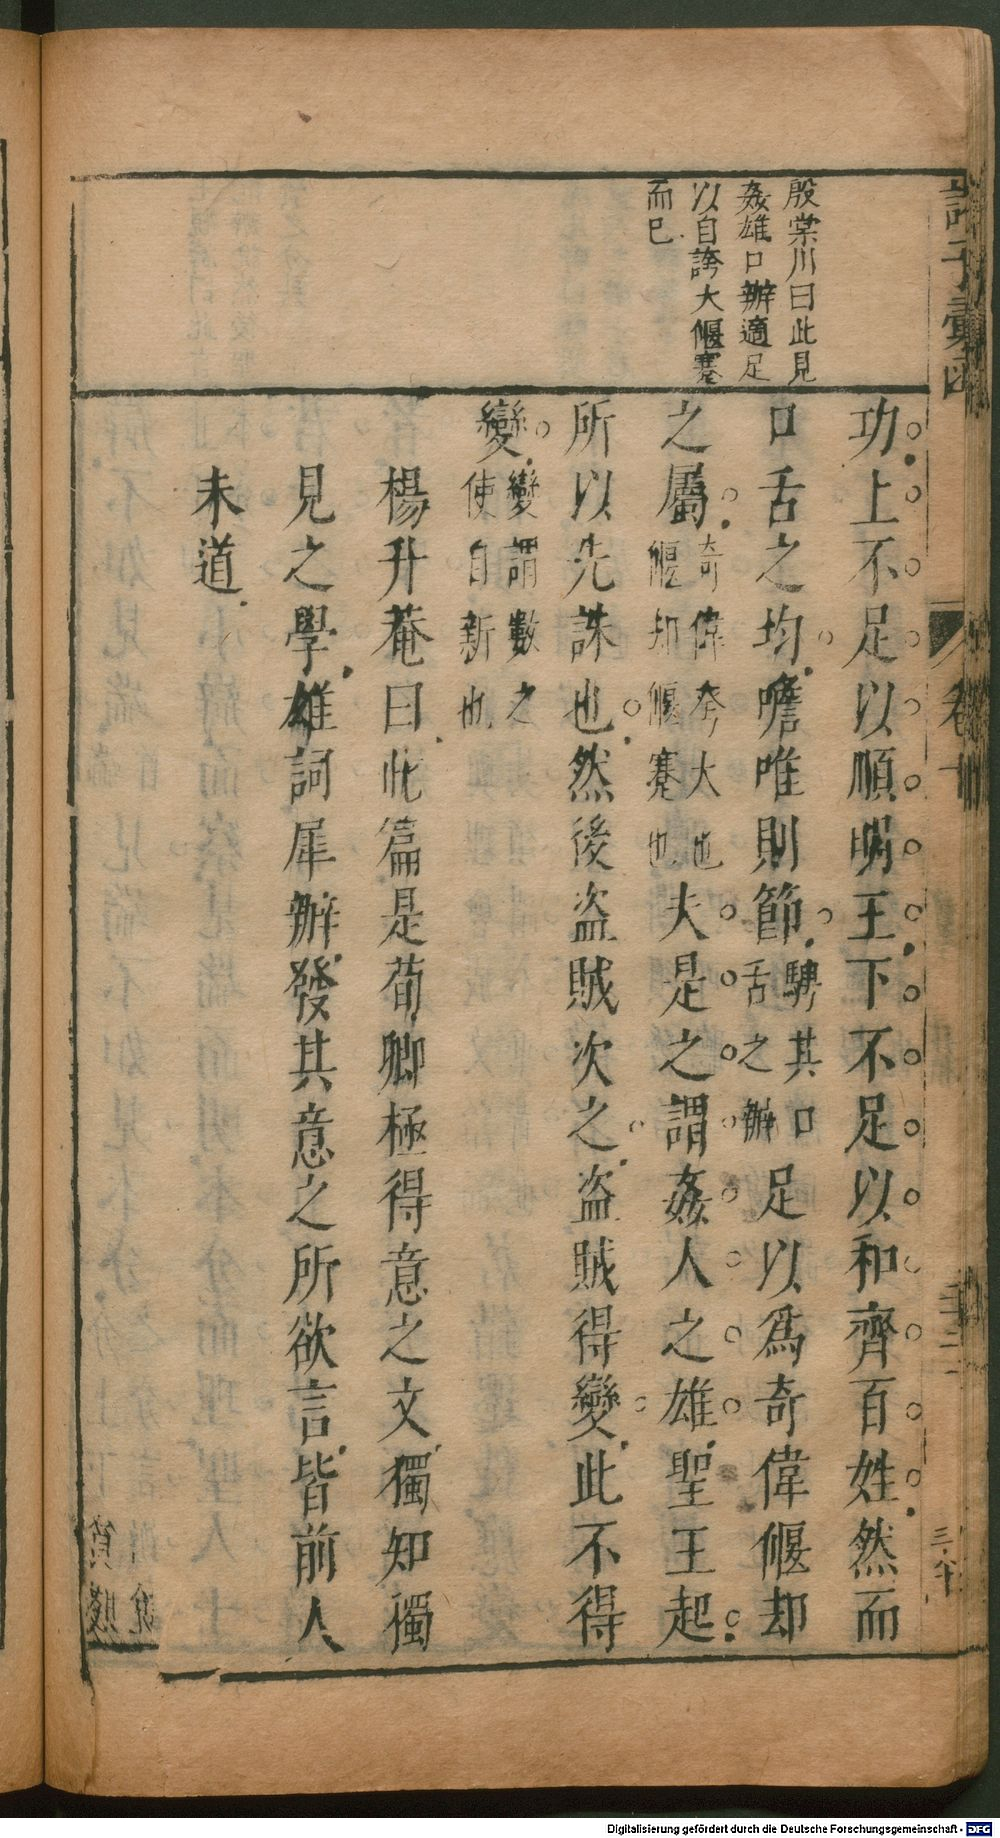 諸子彙函
卷十
殷棠川曰此見
姦雄口辦適足
以自誇大偃蹇
而巳
功上不足以順明王下不足以和齊百姓然而
口舌之均噡唯則節騁其口舌之辦足以爲奇偉偃却
之屬奇偉夸大也偃却偃蹇也夫是之謂姦人之雄聖王起
所以先誅也然後盜賊次之盜賊得變此不得
變變謂數之使自新也
楊升菴曰此篇是荀卿極得意之文獨知獨
見之學雄詞犀辦發其意之所欲言皆前人
未道
Digitalisierung gefördert durch die Deutsche Forschungsgemeinschaft - DFG